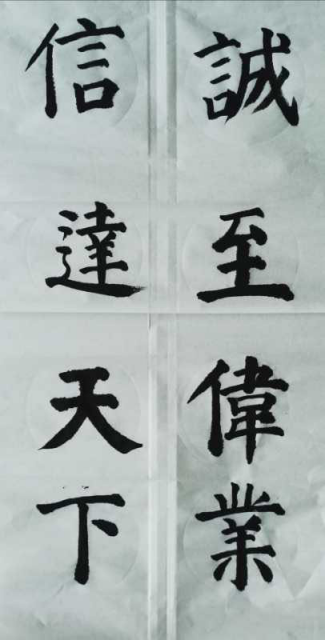 誠至偉業
信達天下